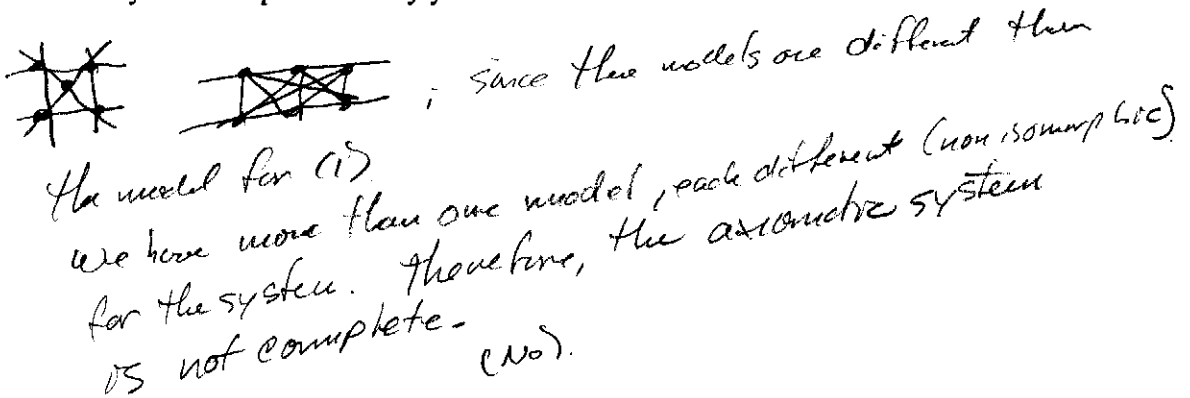 ; Since these models are different than
the model for (i)
We have more than one model, each different (non isomorphic)
for the system. Therefore, the axiomatic system
is not complete.
(No).